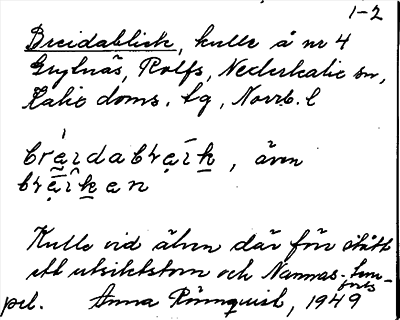 1-2
Breidablick, kulle å nr 4
Grytnäs, Rolfs, Nederkalix sn,
Kalix doms. tg, Norrb. l
brẹ́idabrẹík, även
brẹ́îken
Kulle vid älven där förr stått
ett utsiktstorn och Nannas-
pel. Anna Rönnquist, 1949